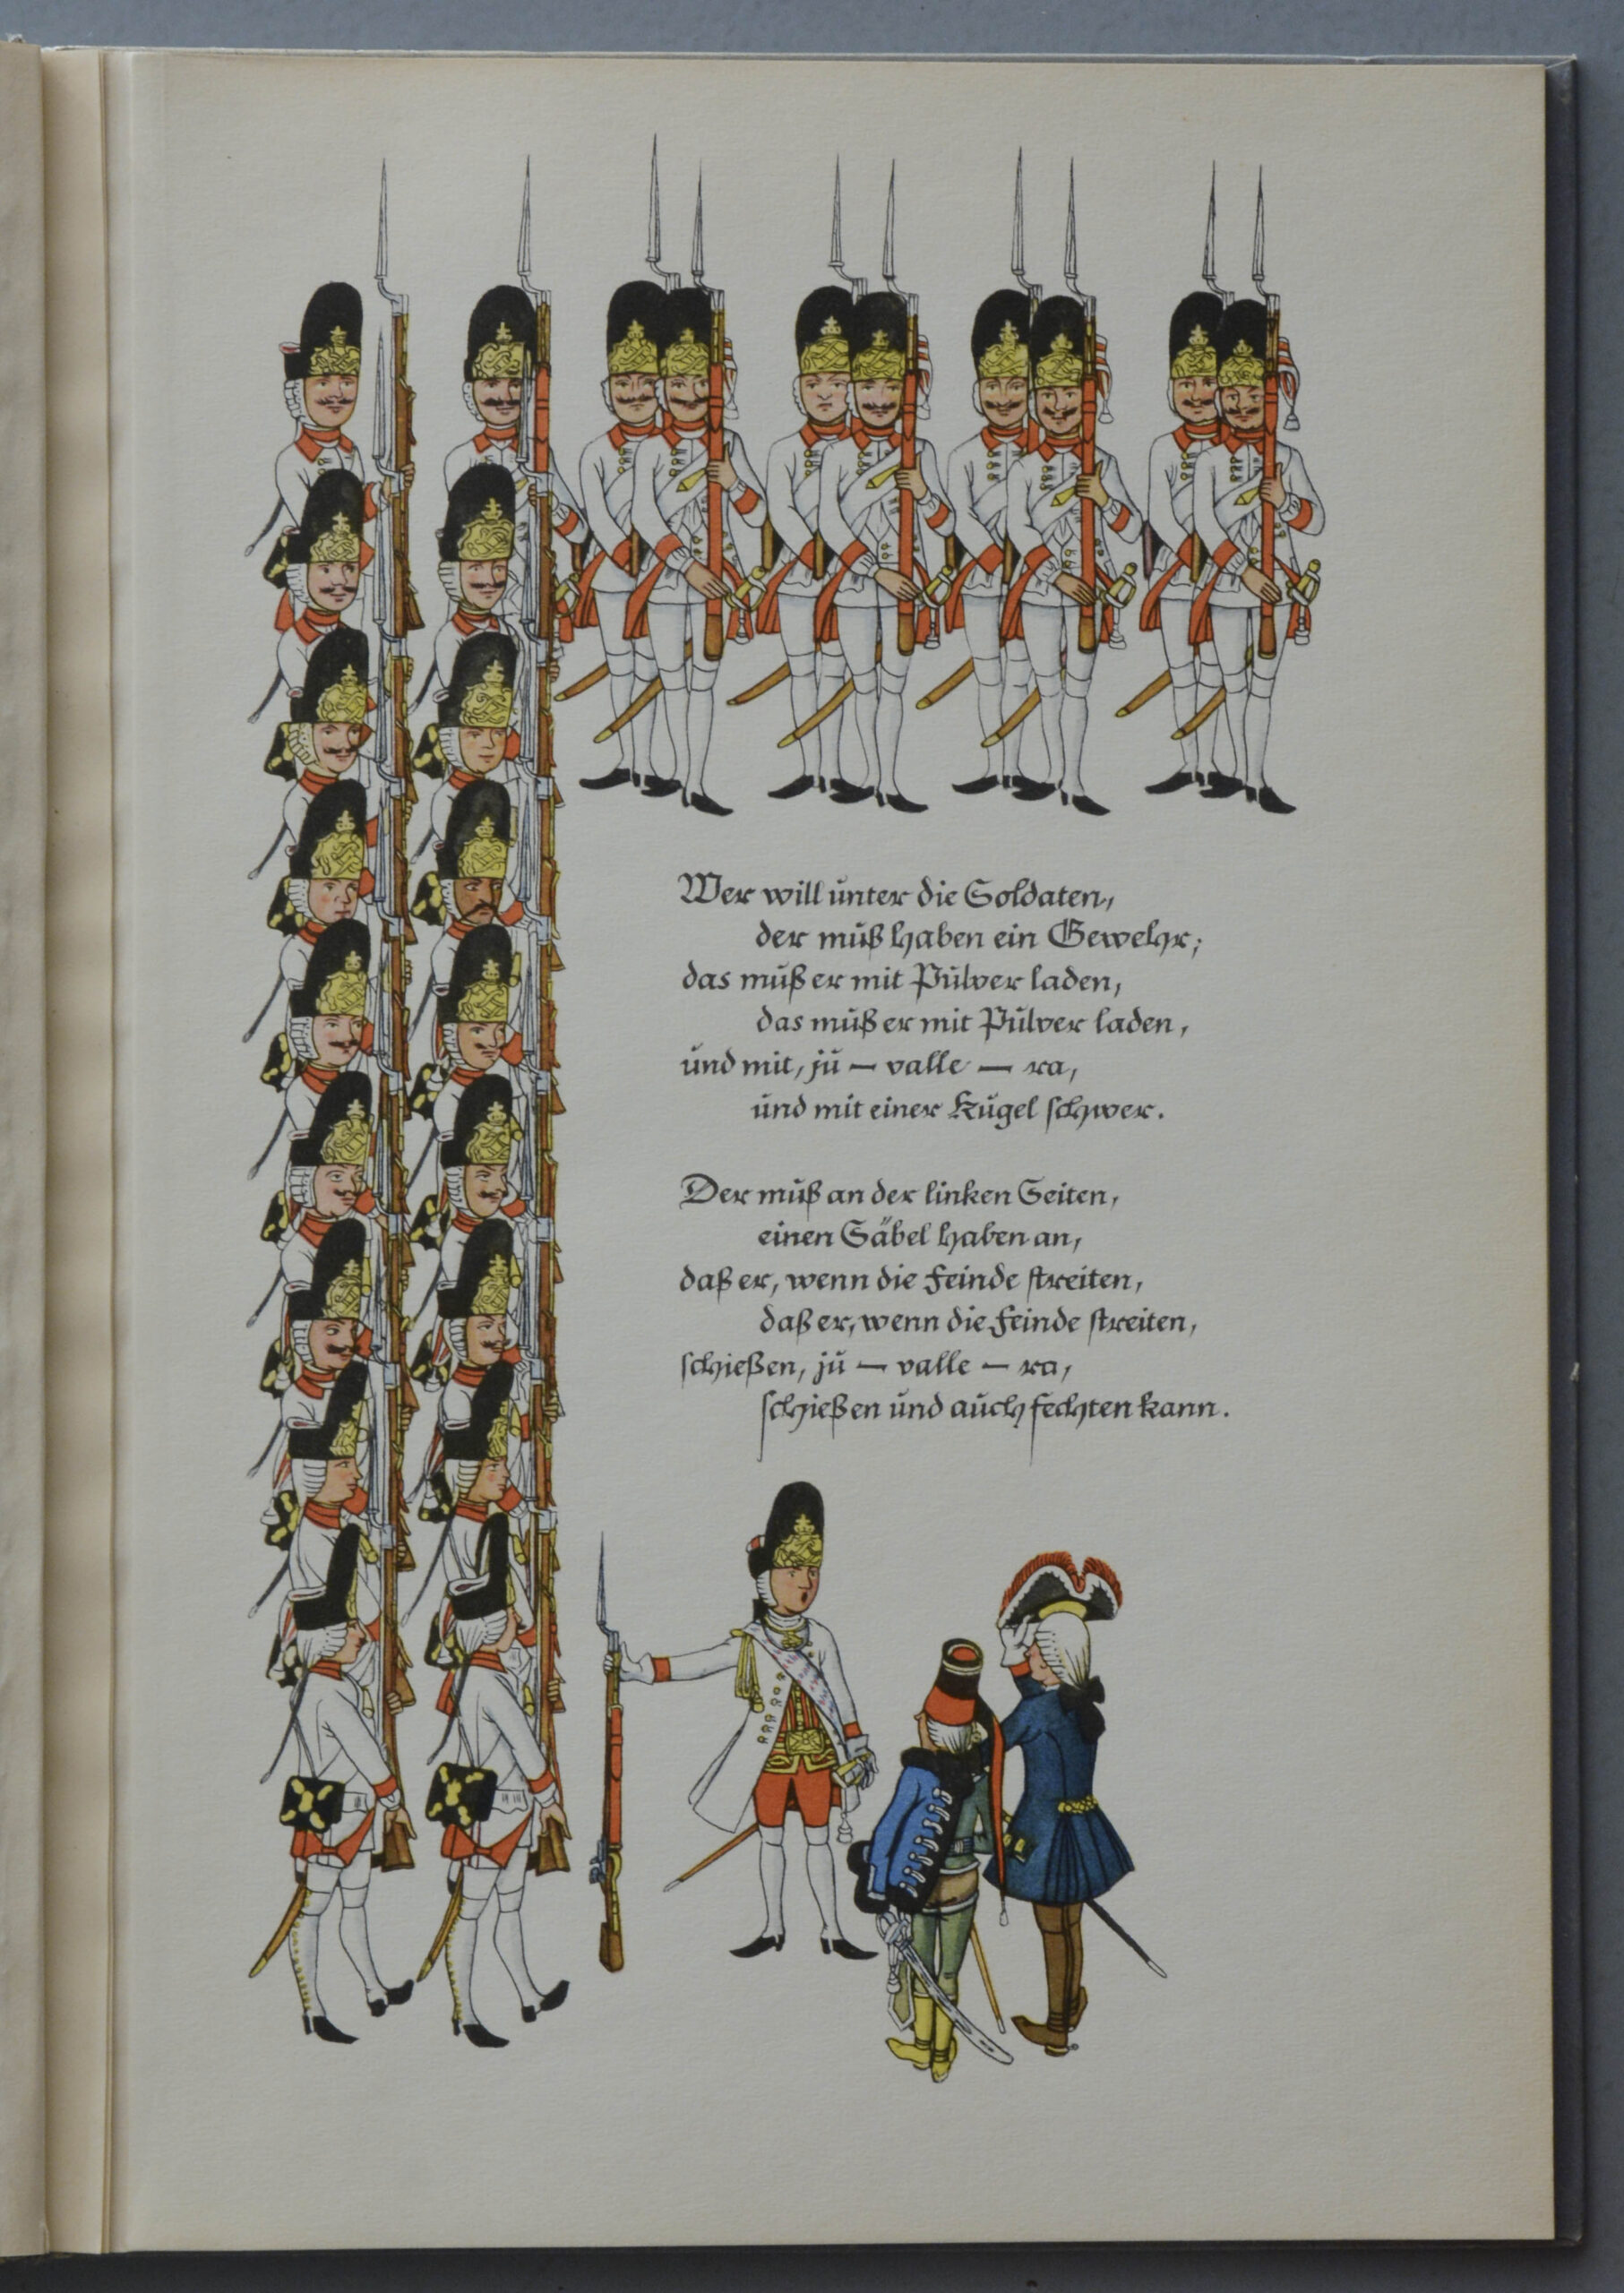 Wer will unter die Soldaten,
der muß haben ein Gewehr;
das muß er mit Pulver laden,
das muß er mit Pulver laden,
und mit, ju — valle — ra,
und mit einer Kugel schwer.
Der muß an der linken Seiten,
einen Säbel haben an,
daß er, wenn die Feinde streiten,
daß er, wenn die Feinde streiten,
schießen, ju — valle — ra,
schießen und auch fechten kann.